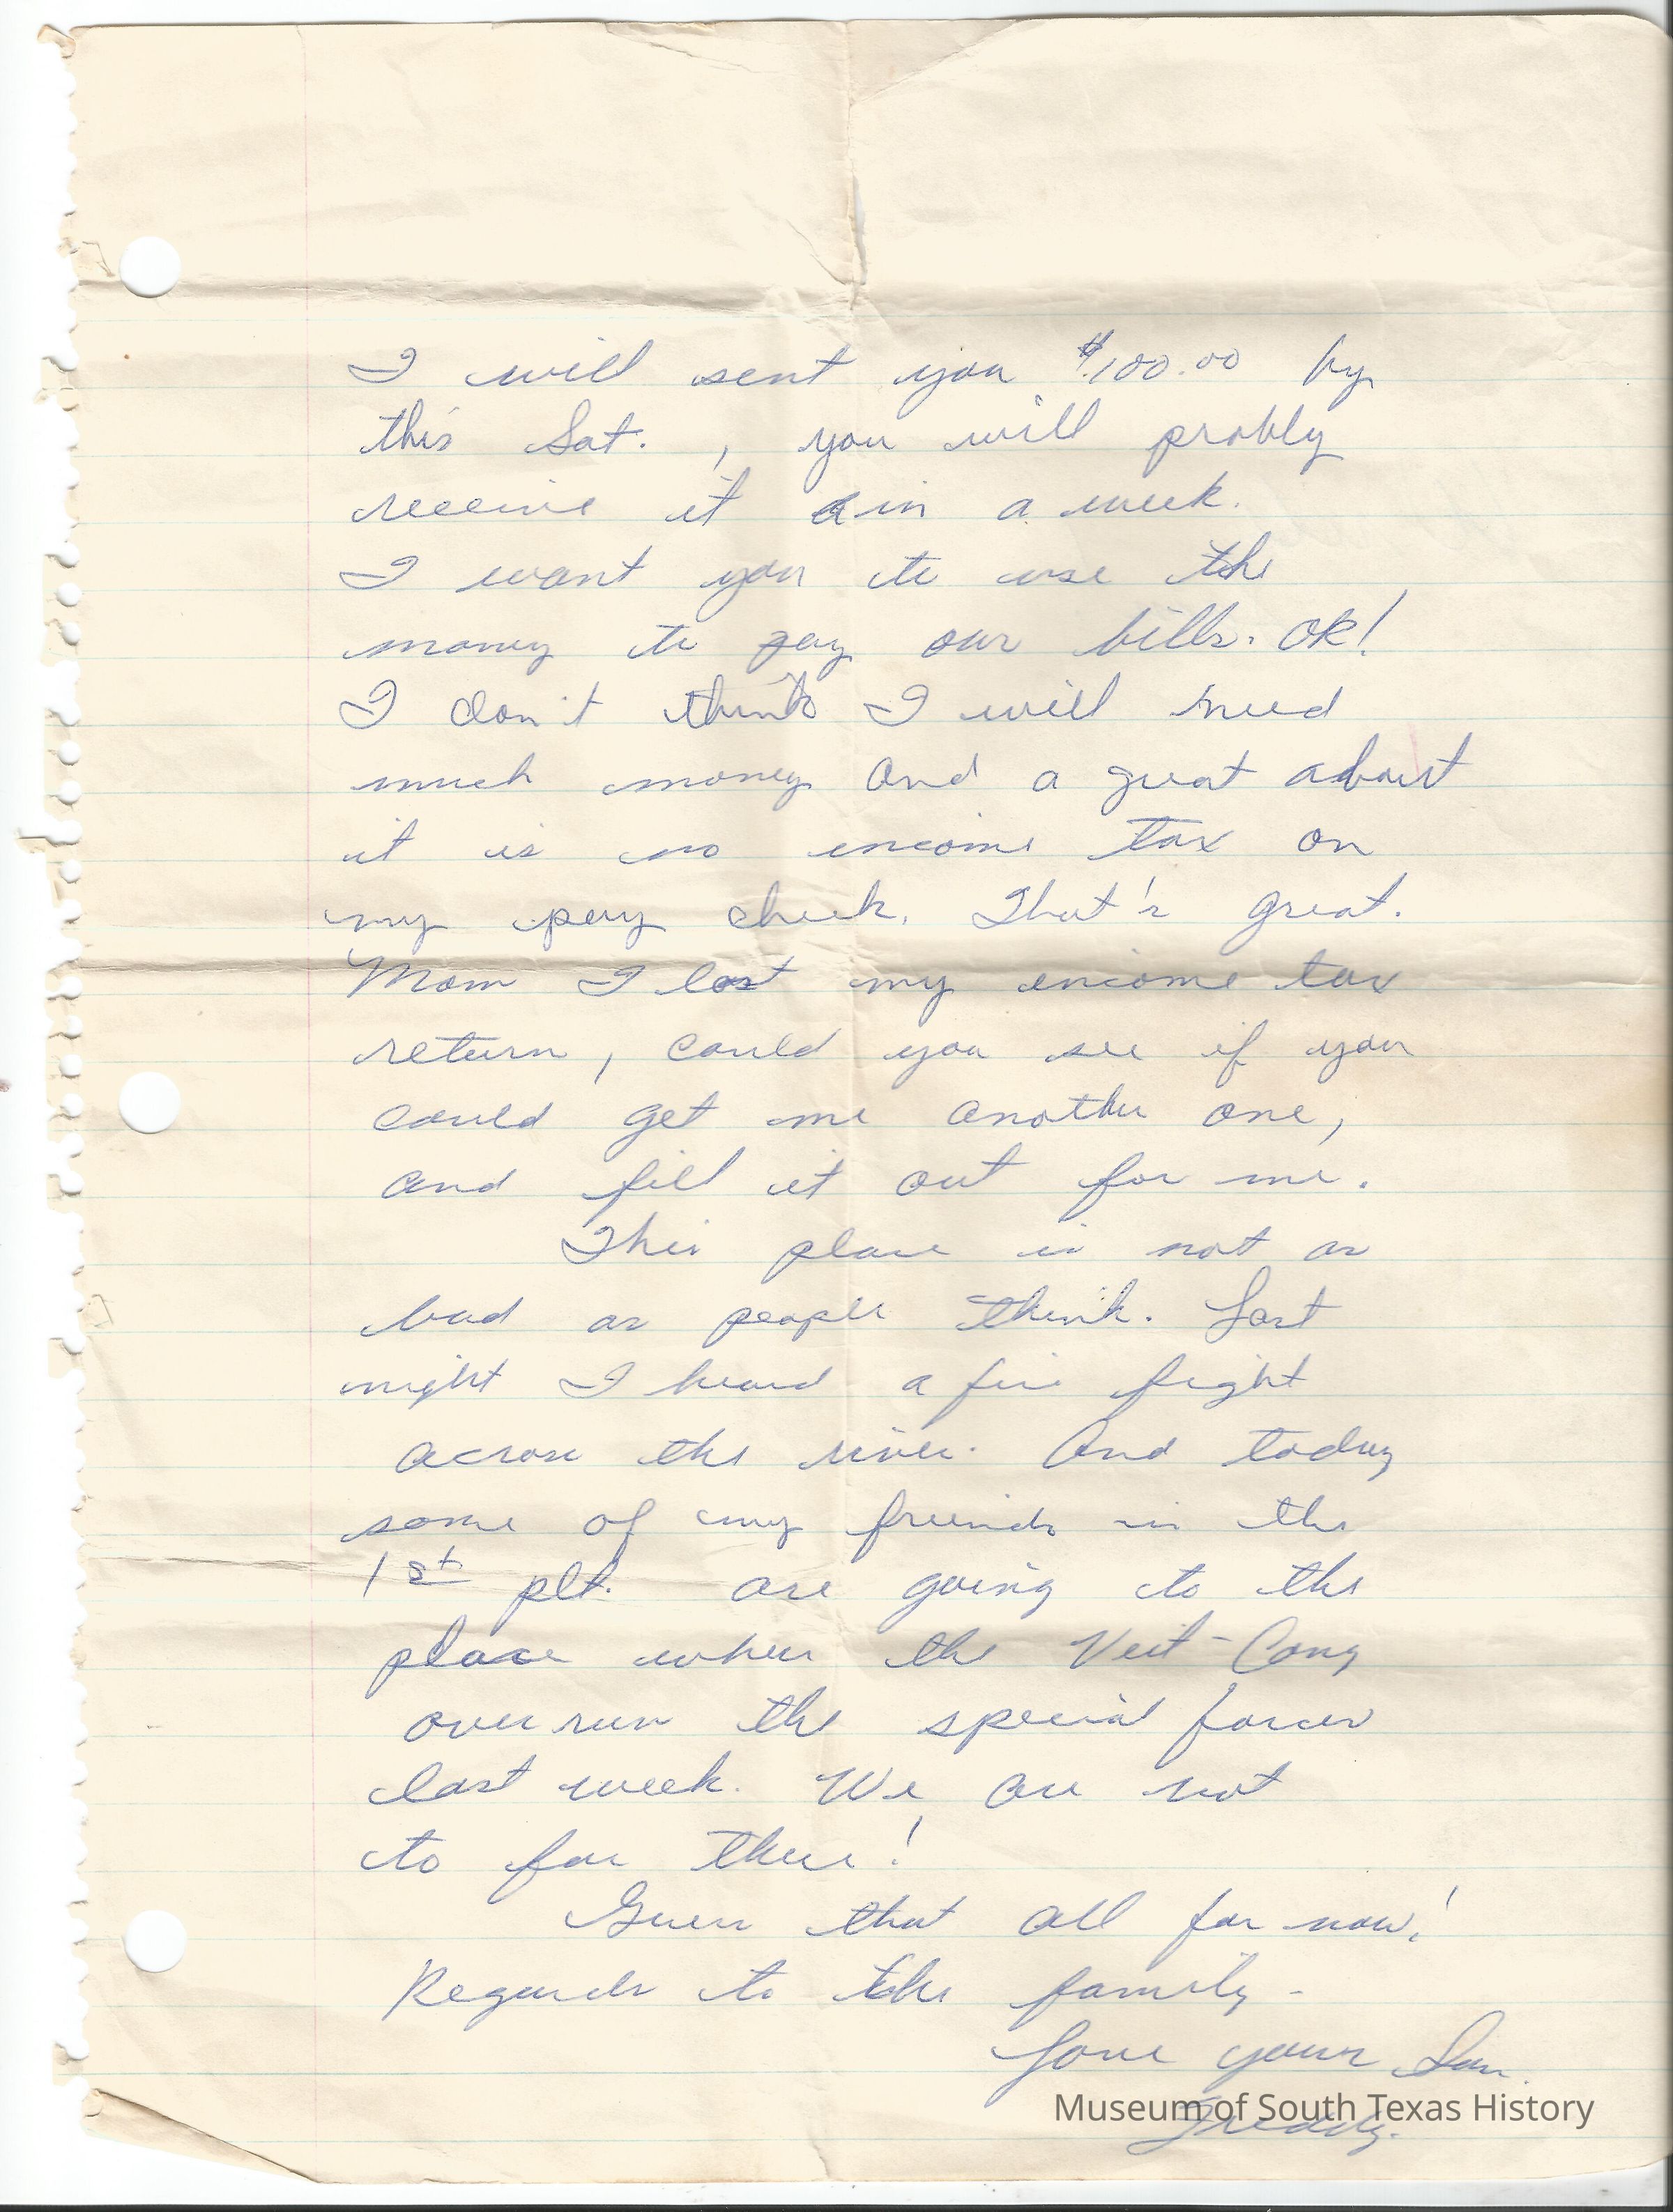 I will sent you $100.00 by
this Sat. , you will probly
receive it in a week.
I want you to use the
money to pay our bills. OK!
I don't think I will need
much money and a great about
it is no income tax on
my pay check. That's great.
Mom I lost my income tax
return, could you see if you
could get me another one,
and fill it out for me.
This place is not as
bad as people think. Last
night I heard a fire fight
across the river. And today
some of my friends in the
1st plt. are going to the
place where the Veit-Cong
over run the special forces
last week. We are not
to far there!
Guess that all for now!
Regards to the family.
Love your Son.
Museum of South Texas History
Freddy.